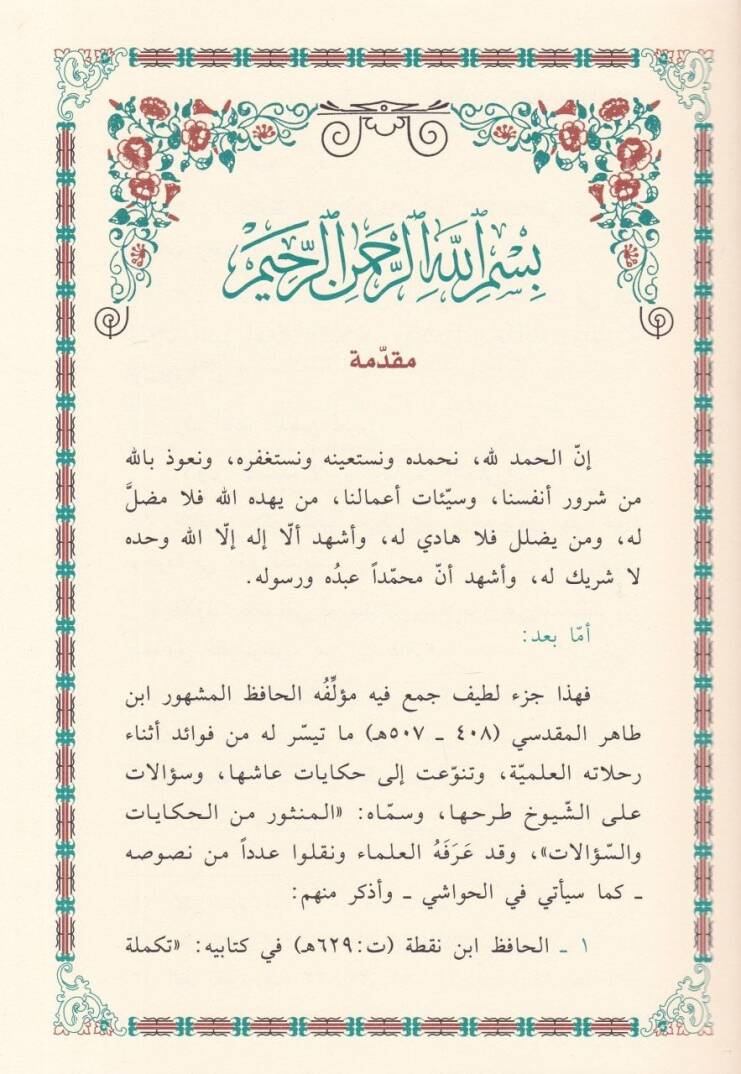 بِسْمِ ٱللَّهِ ٱلرَّحْمَٰنِ ٱلرَّحِيمِ
مقدّمة
إنّ الحمد لله، نحمده ونستعينه ونستغفره، ونعوذ بالله
من شرور أنفسنا، وسيّئات أعمالنا، من يهده الله فلا مضلَّ
له، ومن يضلل فلا هادي له، وأشهد ألّا إله إلّا الله وحده
لا شريك له، وأشهد أنّ محمّداً عبدُه ورسوله.
أمّا بعد:
فهذا جزء لطيف جمع فيه مؤلِّفُه الحافظ المشهور ابن
طاهر المقدسي (٤٠٨ ـ ٥٠٧هـ) ما تيسّر له من فوائد أثناء
رحلاته العلميّة، وتنوّعت إلى حكايات عاشها، وسؤالات
على الشّيوخ طرحها، وسمّاه: «المنثور من الحكايات
والسّؤالات»، وقد عَرَفَهُ العلماء ونقلوا عدداً من نصوصه
ـ كما سيأتي في الحواشي ـ وأذكر منهم:
١ ـ الحافظ ابن نقطة (ت:٦٢٩هـ) في كتابيه: «تكملة